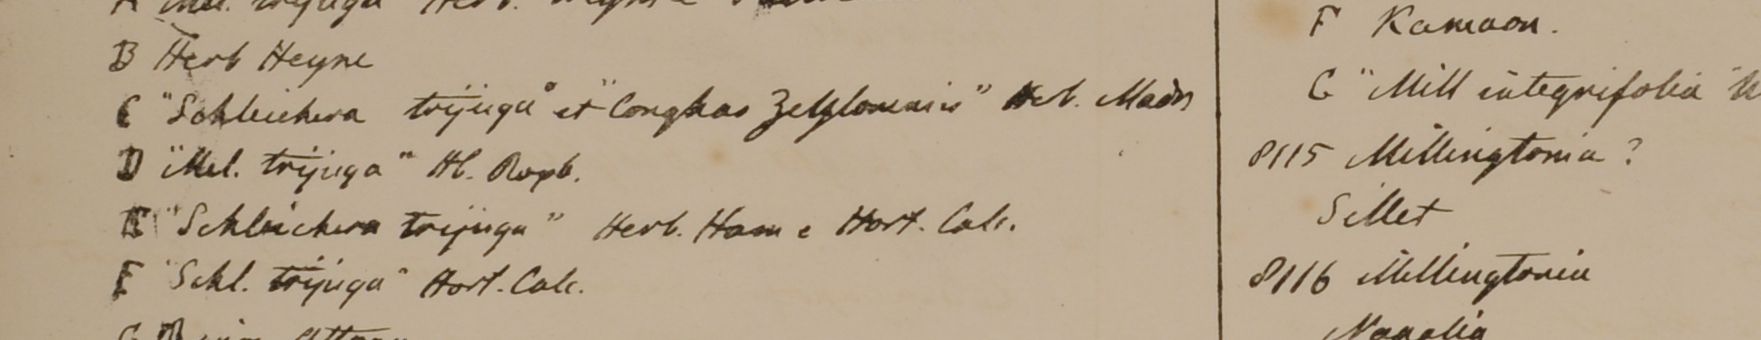 B Herb Heyne
C "Schleichera trijuga" et "Conghas Zeylonenis" Herb. Madrs
D "Mel. trijuga" Hb. Roxb.
E "Schleichera trijuga" Herb. Ham e Hort. Calc.
F "Schl. trijuga" Hort. Calc.
F Kamaon.
G "Mill integrifolia"
8115 Millingtonia ?
Sillet
8116 Millingtonia
Napalia